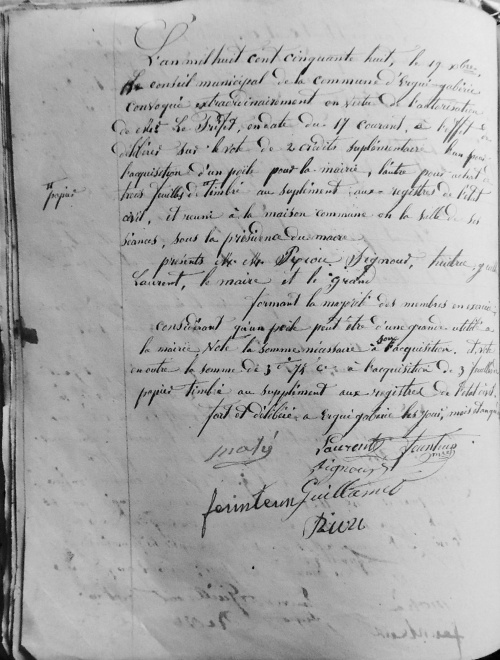 L'an mil huit cent cinquante huit, le 19 xbre,
le conseil municipal de la commune d'Ergui-gabéric
convoqué extraordinairement en vertu de l'autorisation
de Mr Le Préfet, en date du 17 courant, à l'effet de
délibérer sur le vote de 2 crédits suplémentaire l'un pour
l'acquisition d'un poële pour la mairie, l'autre pour achat
papier
trois feuilles de timbré au suplément aux registres de l'état
civil, et réuni à la maison commune en la salle de ses
séances, sous la présidence du maire
présents Mr Mr
Laurent, le maire et le grand
formant la majorité des membres en exercice
considérant qu'un poële peut être d'une grande utilité à
la mairie vote la somme nécessaire à son l'acquisition. et vote
en outre la somme de 3 f 75 c à l'acquisition de 3 feuilles
papier timbré au suppliment aux registres de l'état civil.
fait et délibéré à Ergui gabéric les jour, mois et an que
mahé Laurent
Signour
Guillamet